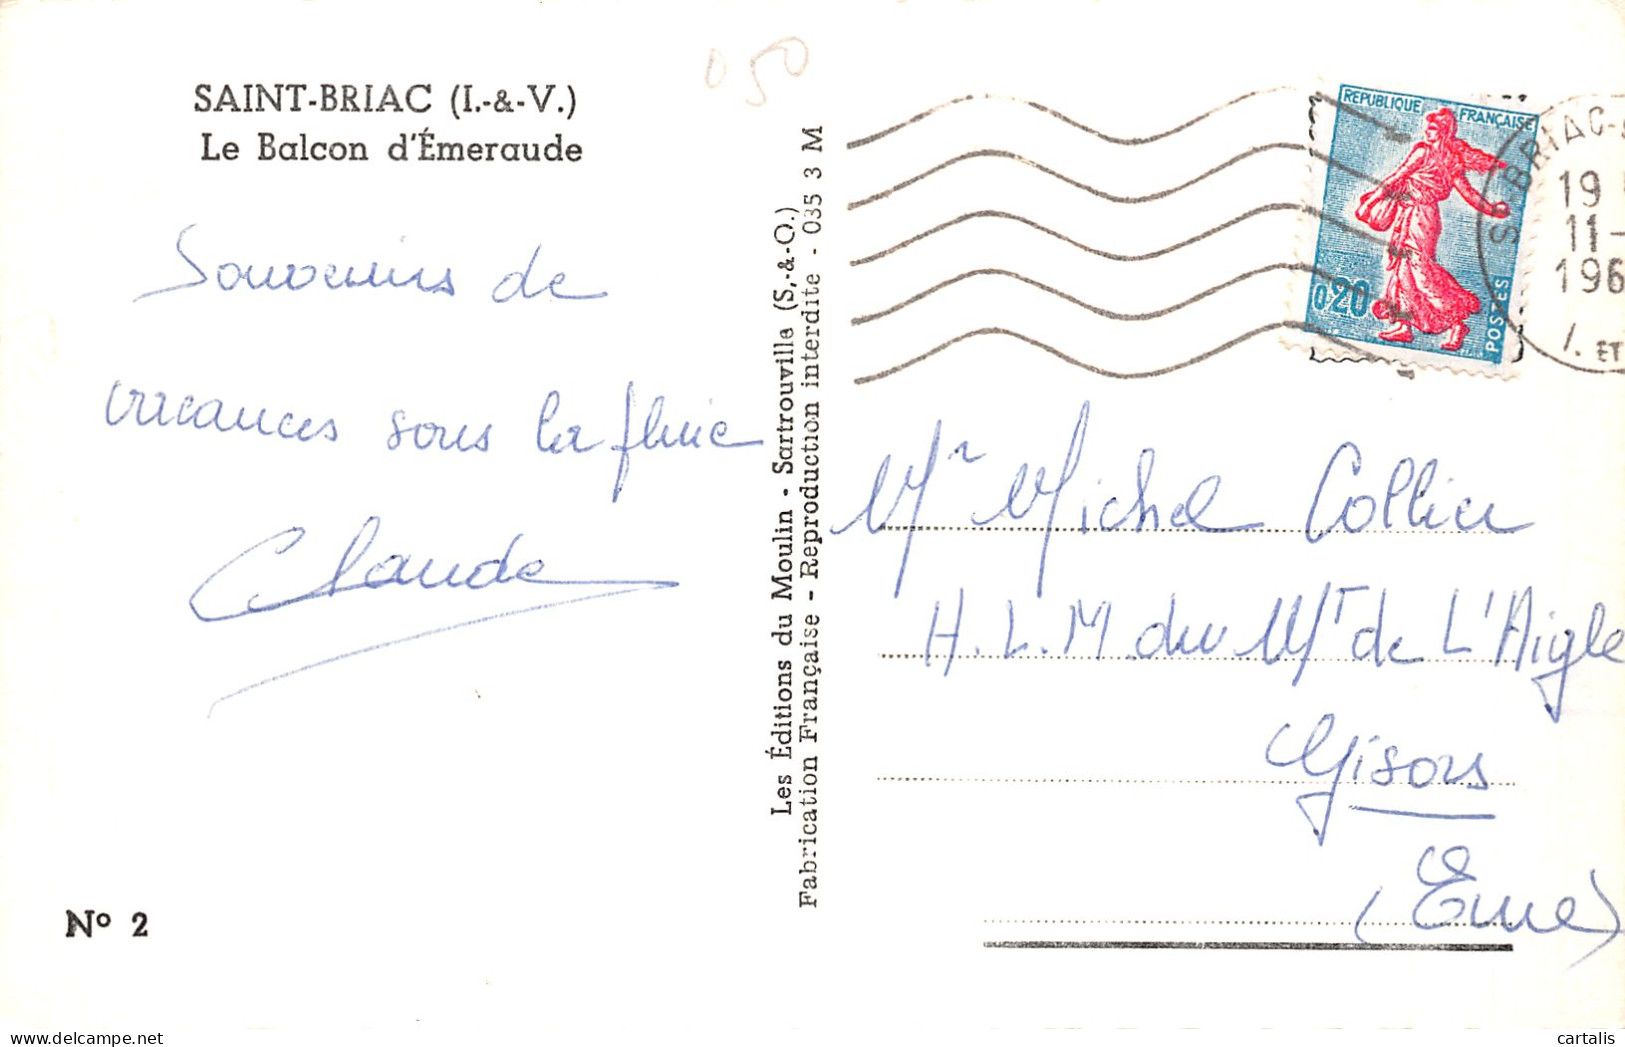 050
SAINT-BRIAC (I.-&-V.)
Le Balcon d'Émeraude
Souvenirs de
vacances sous la pluie
Claude
Nº 2
Les Éditions du Moulin - Sartrouville (S.-&-O.)
Fabrication Française - Reproduction interdite - 035 3 M
REPUBLIQUE FRANÇAISE
0,20
POSTES
ST BRIAC-
19
11-
196
I. ET
Mr Michel Collier
H.L.M du Mt de L'Aigle
Gisors
(Eure)
cartalis
www.delcampe.net